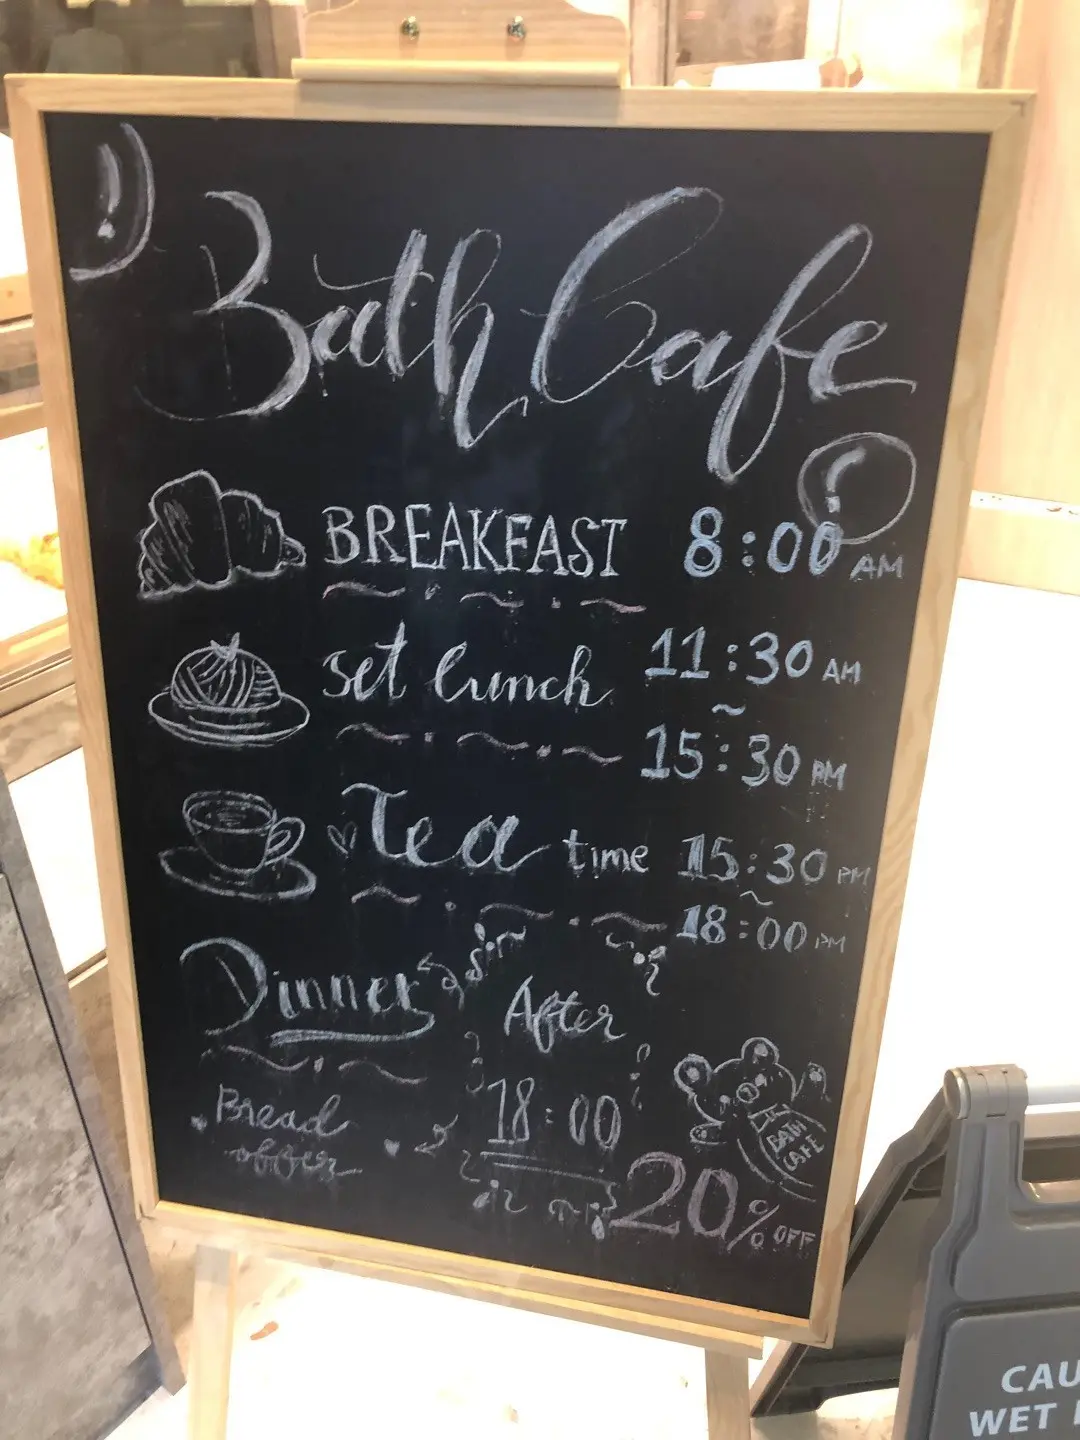 Bath Cafe
BREAKFAST 8:00 AM
set lunch 11:30 AM
~
15:30 PM
Tea time 15:30 PM
~
18:00 PM
Dinner After
18:00
Bread
offer
BATH
CAFE
20% OFF
CAU
WET